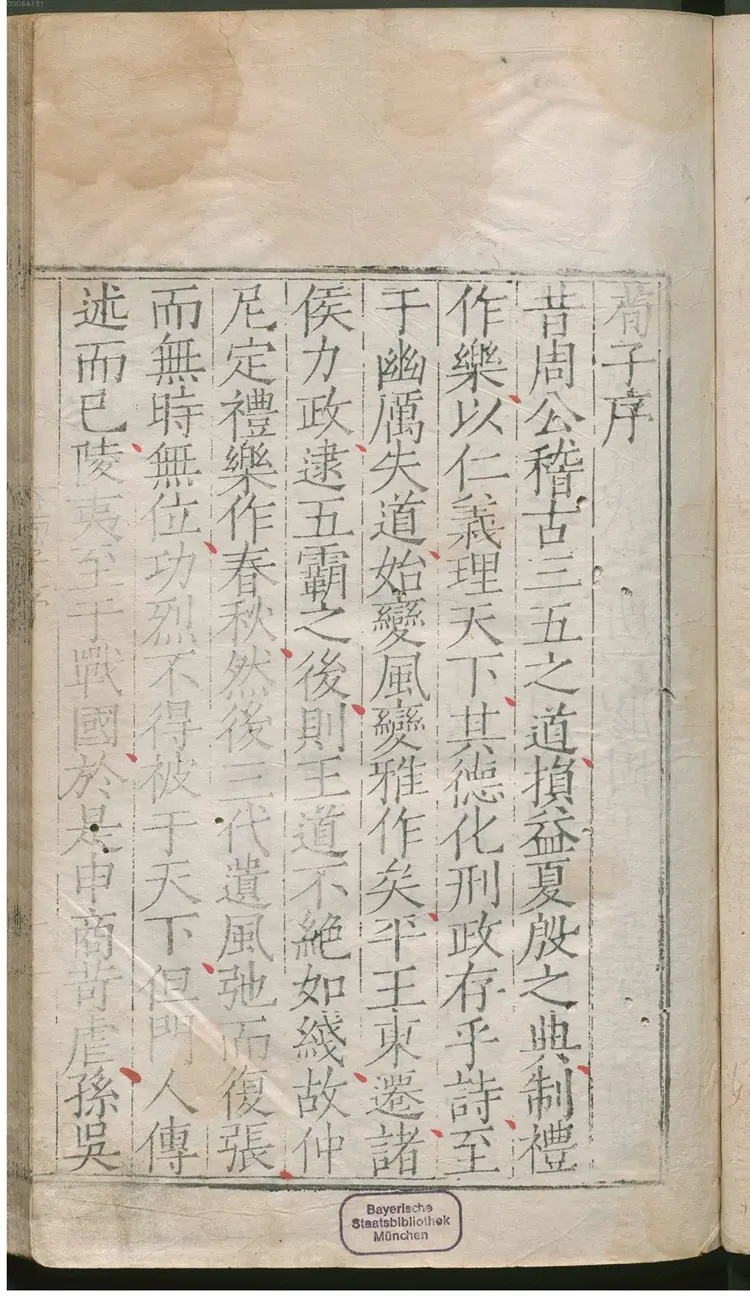 荀子序
昔周公稽古三五之道損益夏殷之典制禮
作樂以仁義理天下其德化刑政存乎詩至
于幽厲失道始變風變雅作矣平王東遷諸
侯力政逮五霸之後則王道不絕如綫故仲
尼定禮樂作春秋然後三代遺風弛而復張
而無時無位功烈不得被于天下但門人傳
述而已陵夷至于戰國於是申商苛虐孫吳
Bayerische
Staatsbibliothek
München